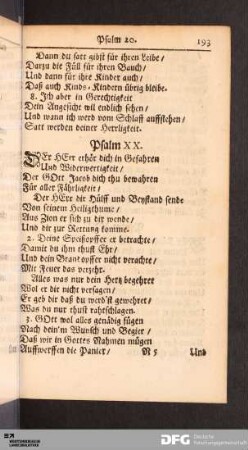 Psalm 20. 193
Dann du satt gibst für ihren Leibe/
Darzu die Füll für ihren Bauch/
Und dann für ihre Kinder auch/
Daß auch Kinds-Kindern übrig bleibe.
8. Ich aber in Gerechtigkeit
Dein Angesicht wil endlich sehen/
Und wann ich werd vom Schlaff aufstehen/
Satt werden deiner Herrligkeit.
Psalm XX.
DEr HErr erhör dich in Gefahren
Und Widerwertigkeit/
Der GOtt Jacob dich thu bewahren
Für aller Fährligkeit/
Der HErr dir Hülff und Beystand sende
Von seinem Heiligthume/
Aus Zion er sich zu dir wende/
Und dir zur Rettung komme.
2. Deine Speisopffer er betrachte/
Damit du ihm thust Ehr/
Und dein Brandopffer nicht verachte/
Mit Feuer das verzehr.
Alles was nur dein Hertz begehret
Wol er dir nicht versagen/
Er geb dir daß du werd'st gewehret/
Was du nur thust rahtschlagen.
3. GOtt wol alles genädig fügen
Nach dein'm Wunsch und Begier/
Daß wir in Gottes Nahmen mügen
Auffwerffen die Panier/ N 5 Und
DFG
Deutsche
Forschungsgemeinschaft